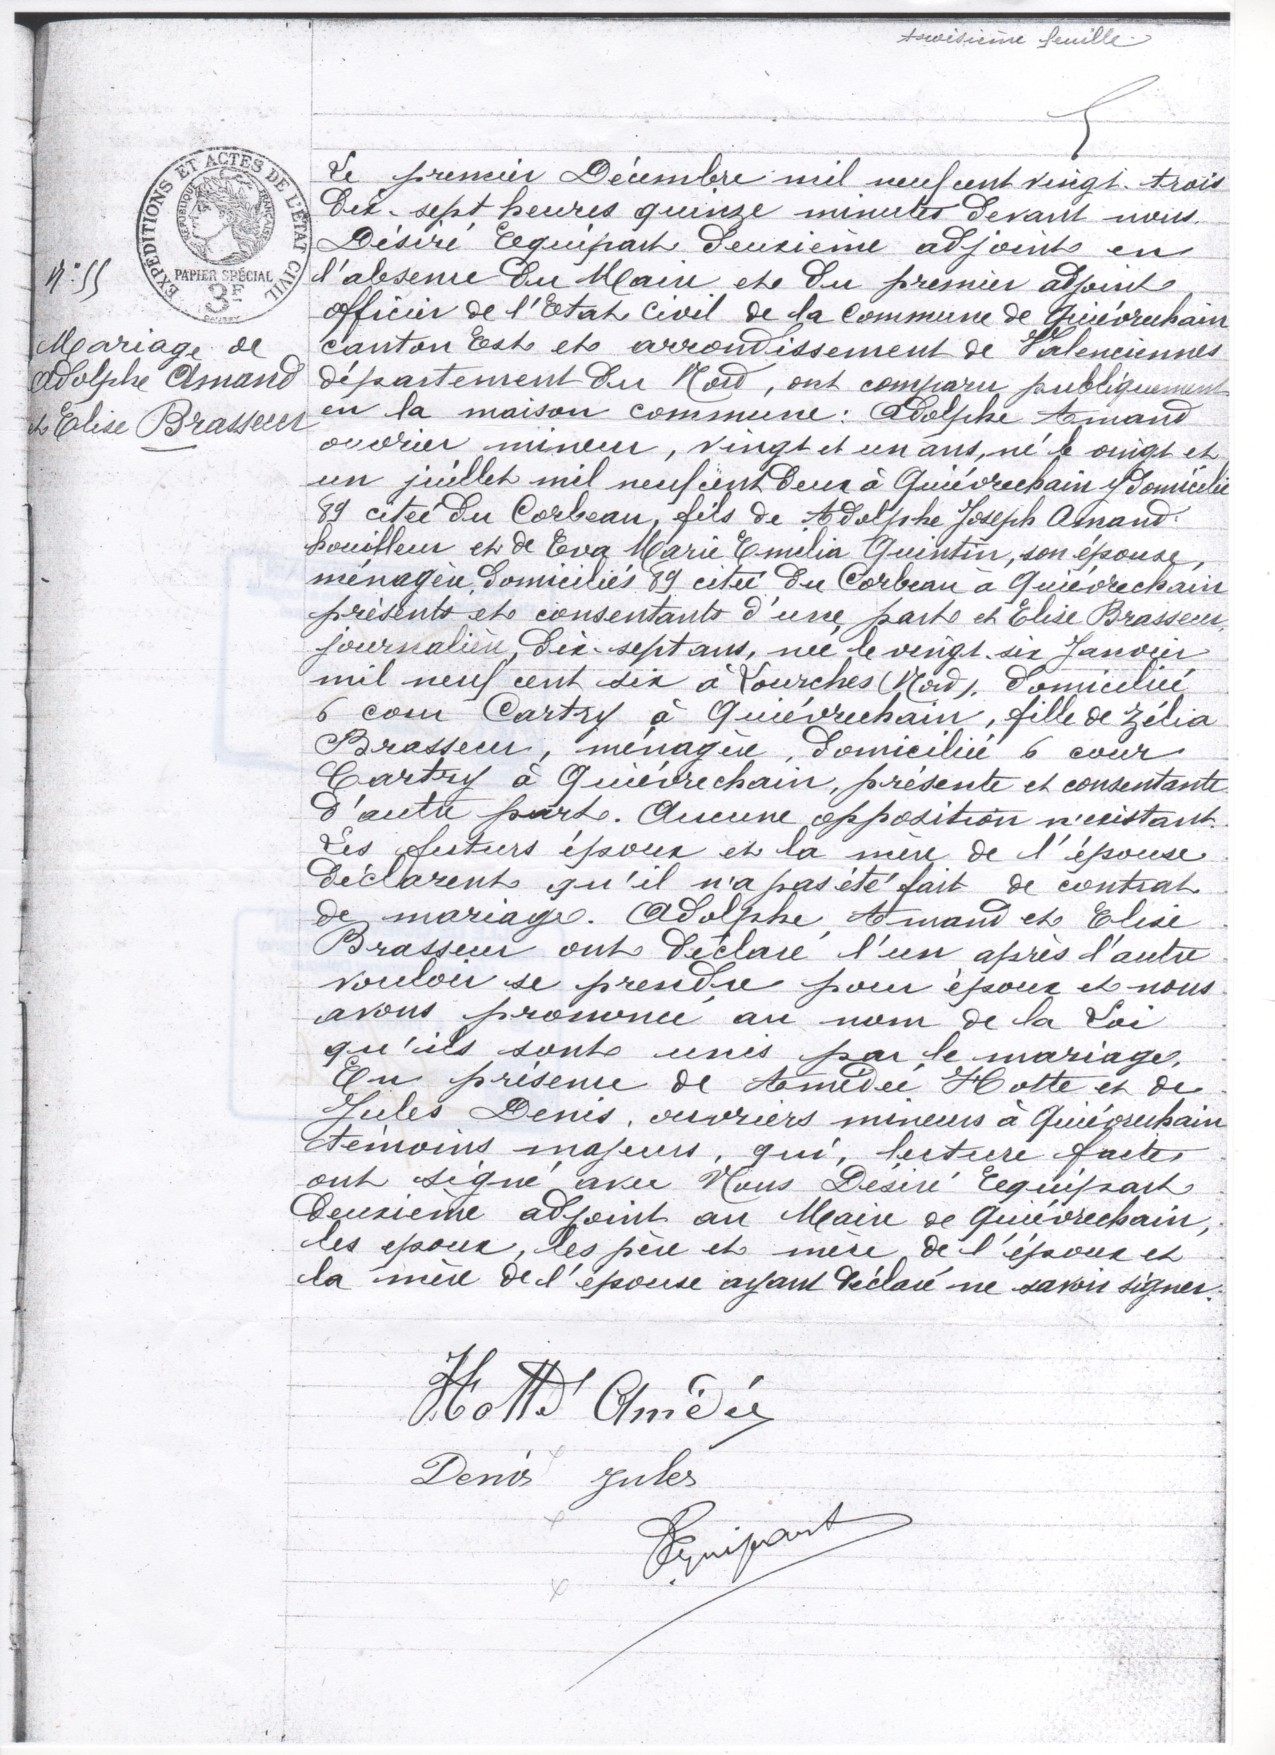 troisième feuille
EXPÉDITIONS ET ACTES DE L'ÉTAT CIVIL
RÉPUBLIQUE FRANÇAISE
PAPIER SPÉCIAL
3F
N° 55
Mariage de
Adolphe Amand
et Elise Brasseur
Le premier Décembre mil neuf cent vingt-trois
dix-sept heures quinze minutes devant nous
Désiré Lequipart deuxième adjoint en
l'absence du Maire et du premier adjoint
officier de l'Etat Civil de la Commune de Quiévrechain
canton Est et arrondissement de Valenciennes
département du Nord, ont comparu publiquement
en la maison commune : Adolphe Amand
ouvrier mineur, vingt et un ans, né le vingt et
un juillet mil neuf cent deux à Quiévrechain y domicilié
89 citée du Corbeau, fils de Adolphe Joseph Amand
houilleur et de Eva Marie Emilia Quintin, son épouse,
ménagère, domiciliés 89 citée du Corbeau à Quiévrechain
présents et consentants d'une part et Elise Brasseur,
journalière, dix-sept ans, née le vingt-six Janvier
mil neuf cent six à Lourches (Nord). domiciliée
6 cour Cartry à Quiévrechain, fille de Zélia
Brasseur, ménagère, domiciliée 6 cour
Cartry à Quiévrechain, présente et consentante
d'autre part. Aucune opposition n'existant.
Les futurs époux et la mère de l'épouse
déclarent qu'il n'a pas été fait de contrat
de mariage. Adolphe Amand et Elise
Brasseur ont déclaré l'un après l'autre
vouloir se prendre pour époux et nous
avons prononcé au nom de la Loi
qu'ils sont unis par le mariage.
En présence de Amédée Hotte et de
Jules Denis, ouvriers mineurs à Quiévrechain
témoins majeurs, qui, lecture faite,
ont signé avec Nous Désiré Lequipart
deuxième adjoint au Maire de Quiévrechain,
les époux, les père et mère de l'époux et
la mère de l'épouse ayant déclaré ne savoir signer.
Hotte Amédée
Denis Jules
Lequipart